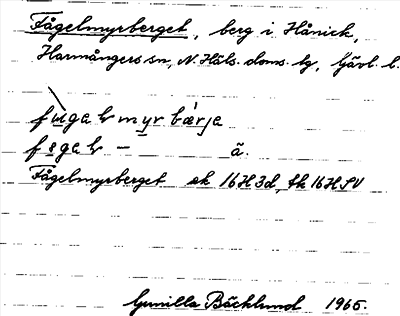 Fågelmyrberget, berg i Hånick,
Harmångers sn, N. Häls. doms. tg, Gävl. l.
fùgaḷmyrbǽrja
fɘgaḷ - ã.
Fågelmyrberget ek 16H3d, tk 16H SV
Gunilla Bäcklund 1965.